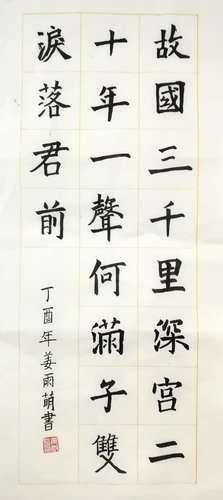 故國三千里深宫二
十年一聲何滿子雙
淚落君前
丁酉年姜雨萌書